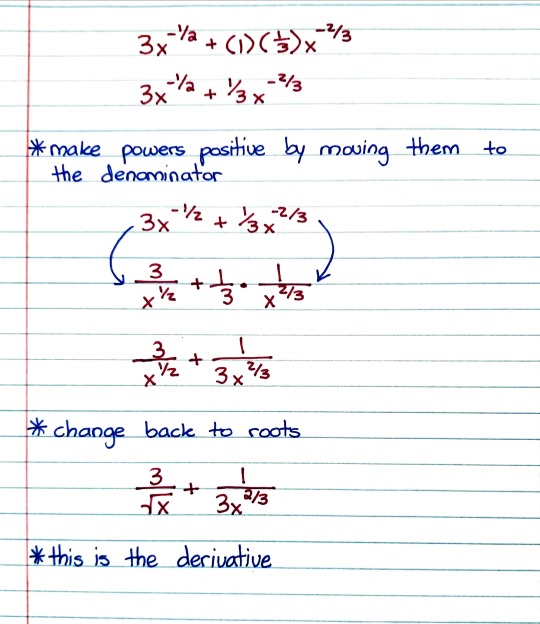 3x^(-1/2) + (1)(1/3)x^(-2/3)
3x^(-1/2) + 1/3 x^(-2/3)
*make powers positive by moving them to
the denominator
3x^(-1/2) + 1/3x^(-2/3)
3/x^(1/2) + 1/3 · 1/x^(2/3)
3/x^(1/2) + 1/(3x^(2/3))
*change back to roots
3/√x + 1/(3x^(2/3))
*this is the derivative